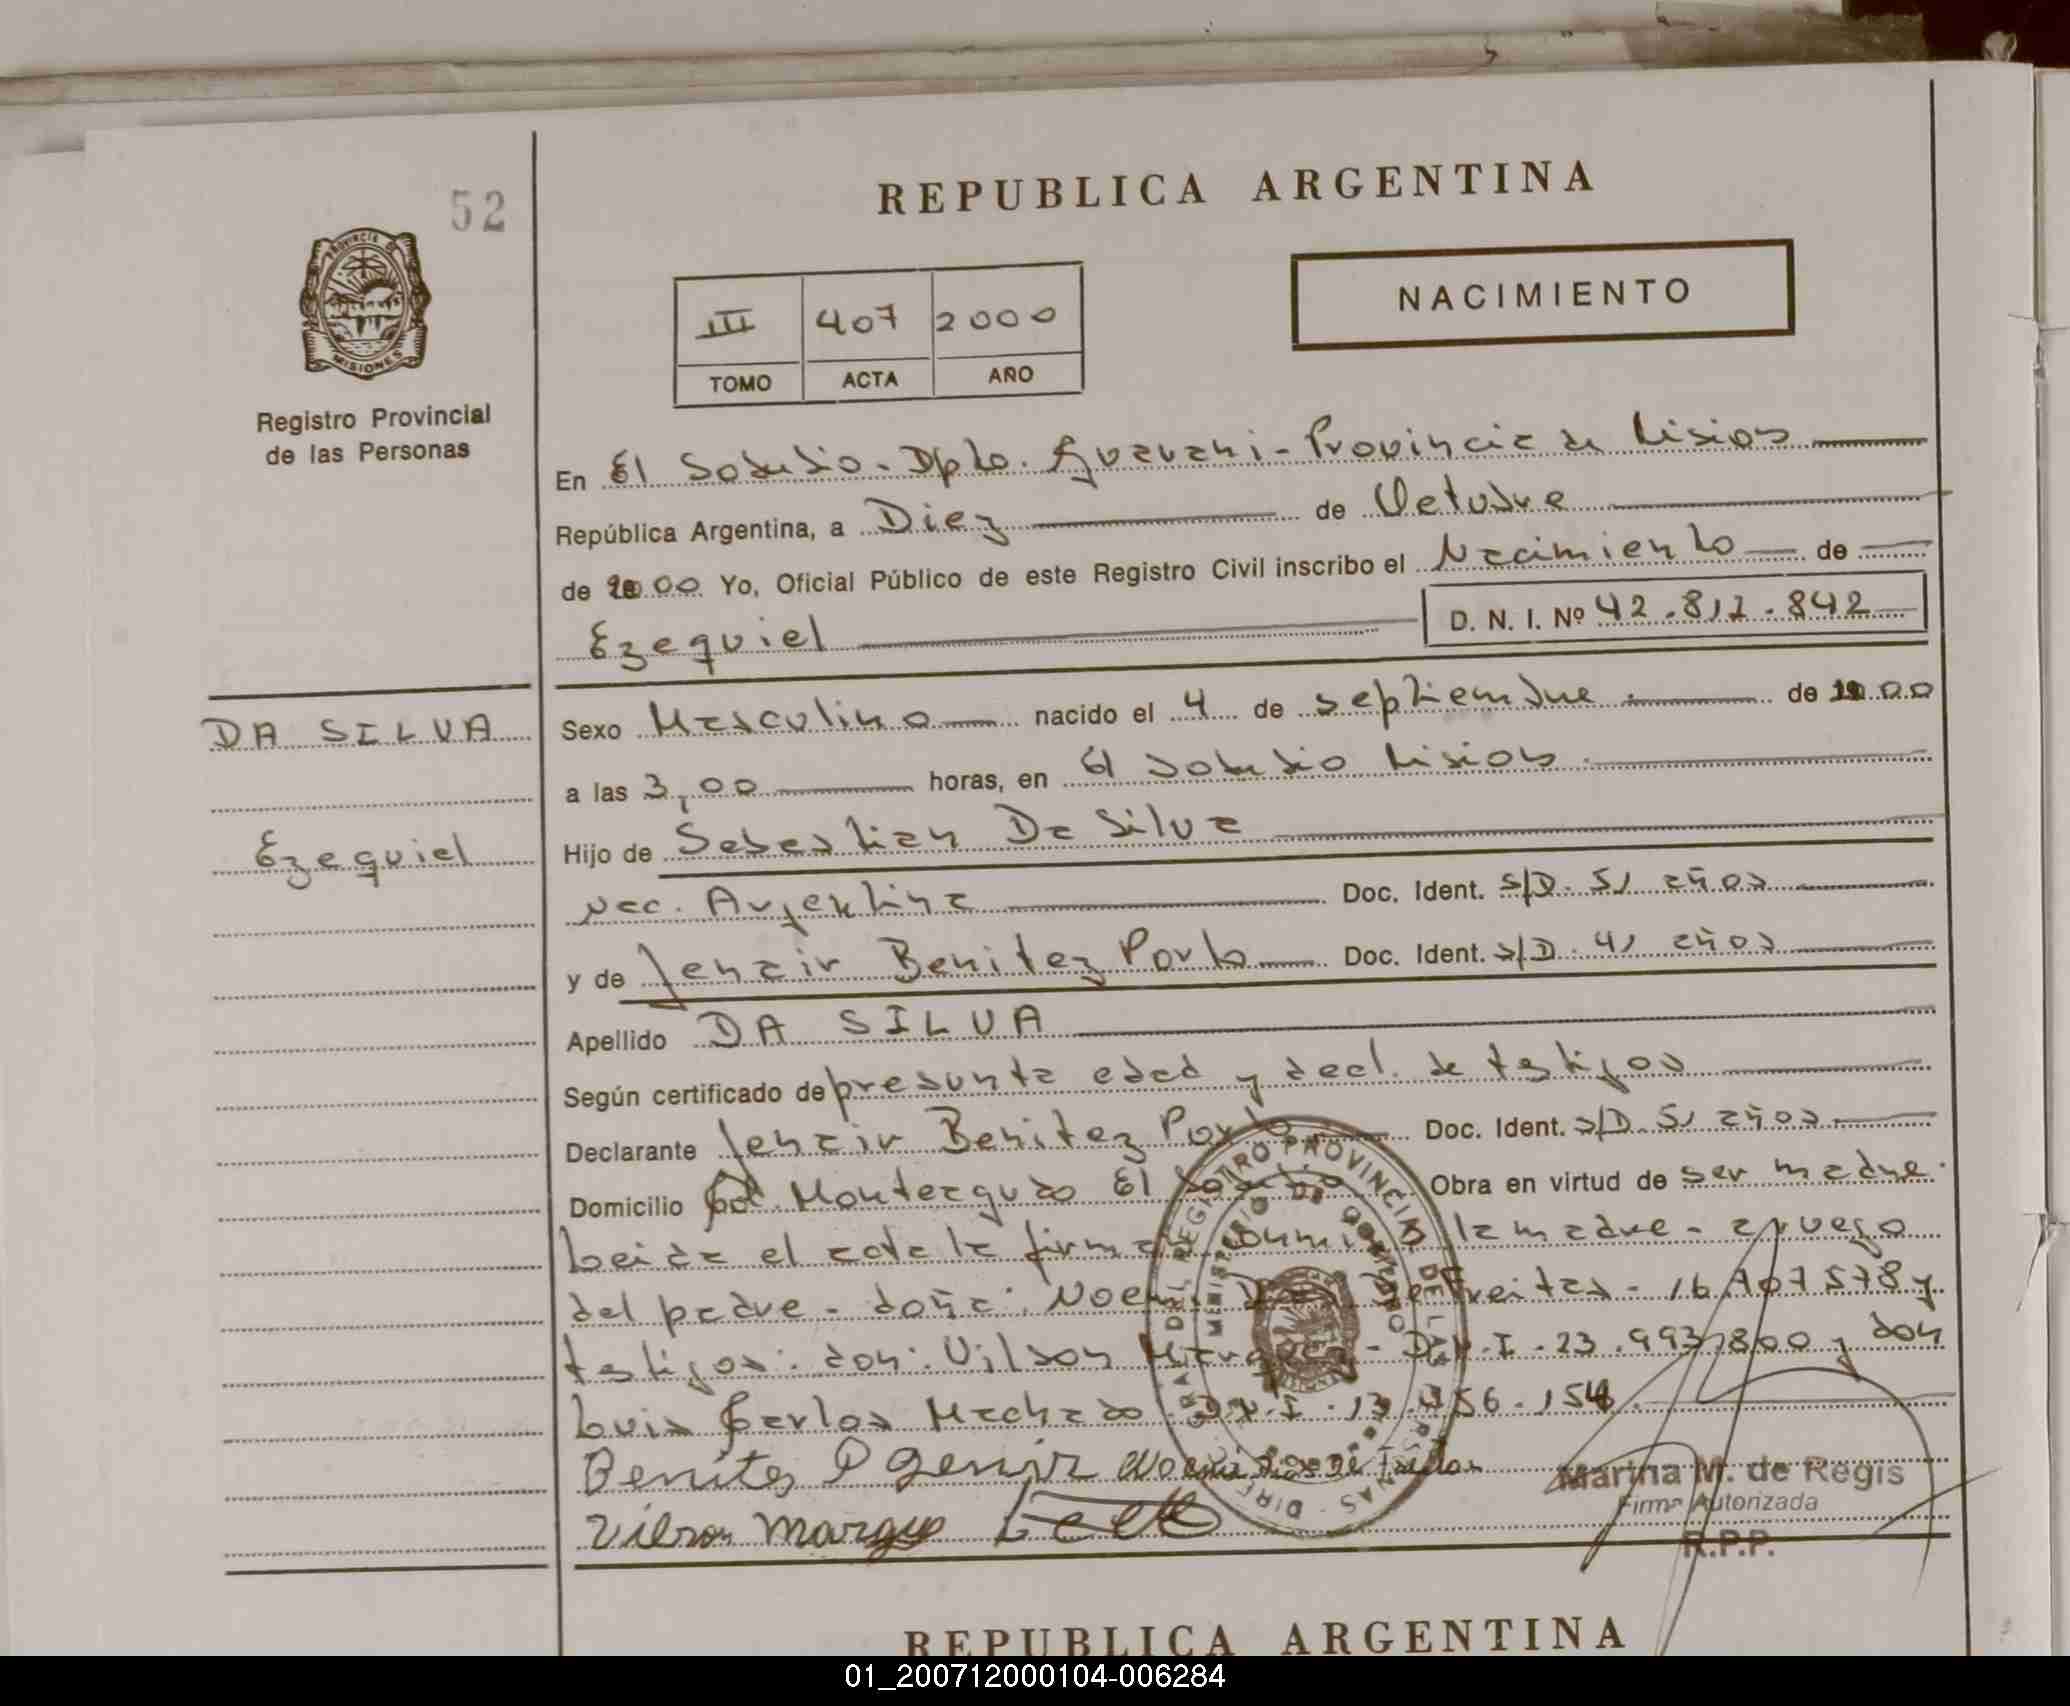 52
REPUBLICA ARGENTINA
NACIMIENTO
III 407 2000
TOMO ACTA AÑO
PROVINCIA DE MISIONES
Registro Provincial
de las Personas
En El Soberbio - Dpto. Guarani - Provincia de Misiones
República Argentina, a Diez de Octubre
de 2000 Yo, Oficial Público de este Registro Civil inscribo el Nacimiento de
Ezequiel D. N. I. Nº 42.811.842
DA SILVA
Ezequiel
Sexo Masculino nacido el 4 de septiembre de 2000
a las 3,00 horas, en El Soberbio Misiones
Hijo de Sebastian Da Silva
nac. Argentina Doc. Ident. S/D. 51 años
y de Jenair Benitez Porto Doc. Ident. S/D. 41 años
Apellido DA SILVA
Según certificado de presunta edad y decl. de testigos
Declarante Jenair Benitez Porto Doc. Ident. S/D. 51 años
Domicilio Col. Monteagudo El Soberbio Obra en virtud de ser madre
Leida el acta la firman conmigo la madre - a ruego
del padre - doña: De Freitas - 16.707.578 y
testigos: don: Vilson D.N.I. 23.993.800 y don
Luis Carlos Machado D.N.I. 156.154
Benites
Vilson
DIRECCION GRAL DEL REGISTRO PROVINCIAL DE LAS PERSONAS
MINISTERIO DE GOBIERNO
MISIONES
Marina M. de Regis
Firma Autorizada
R.P.P.
REPUBLICA ARGENTINA
01_200712000104-006284